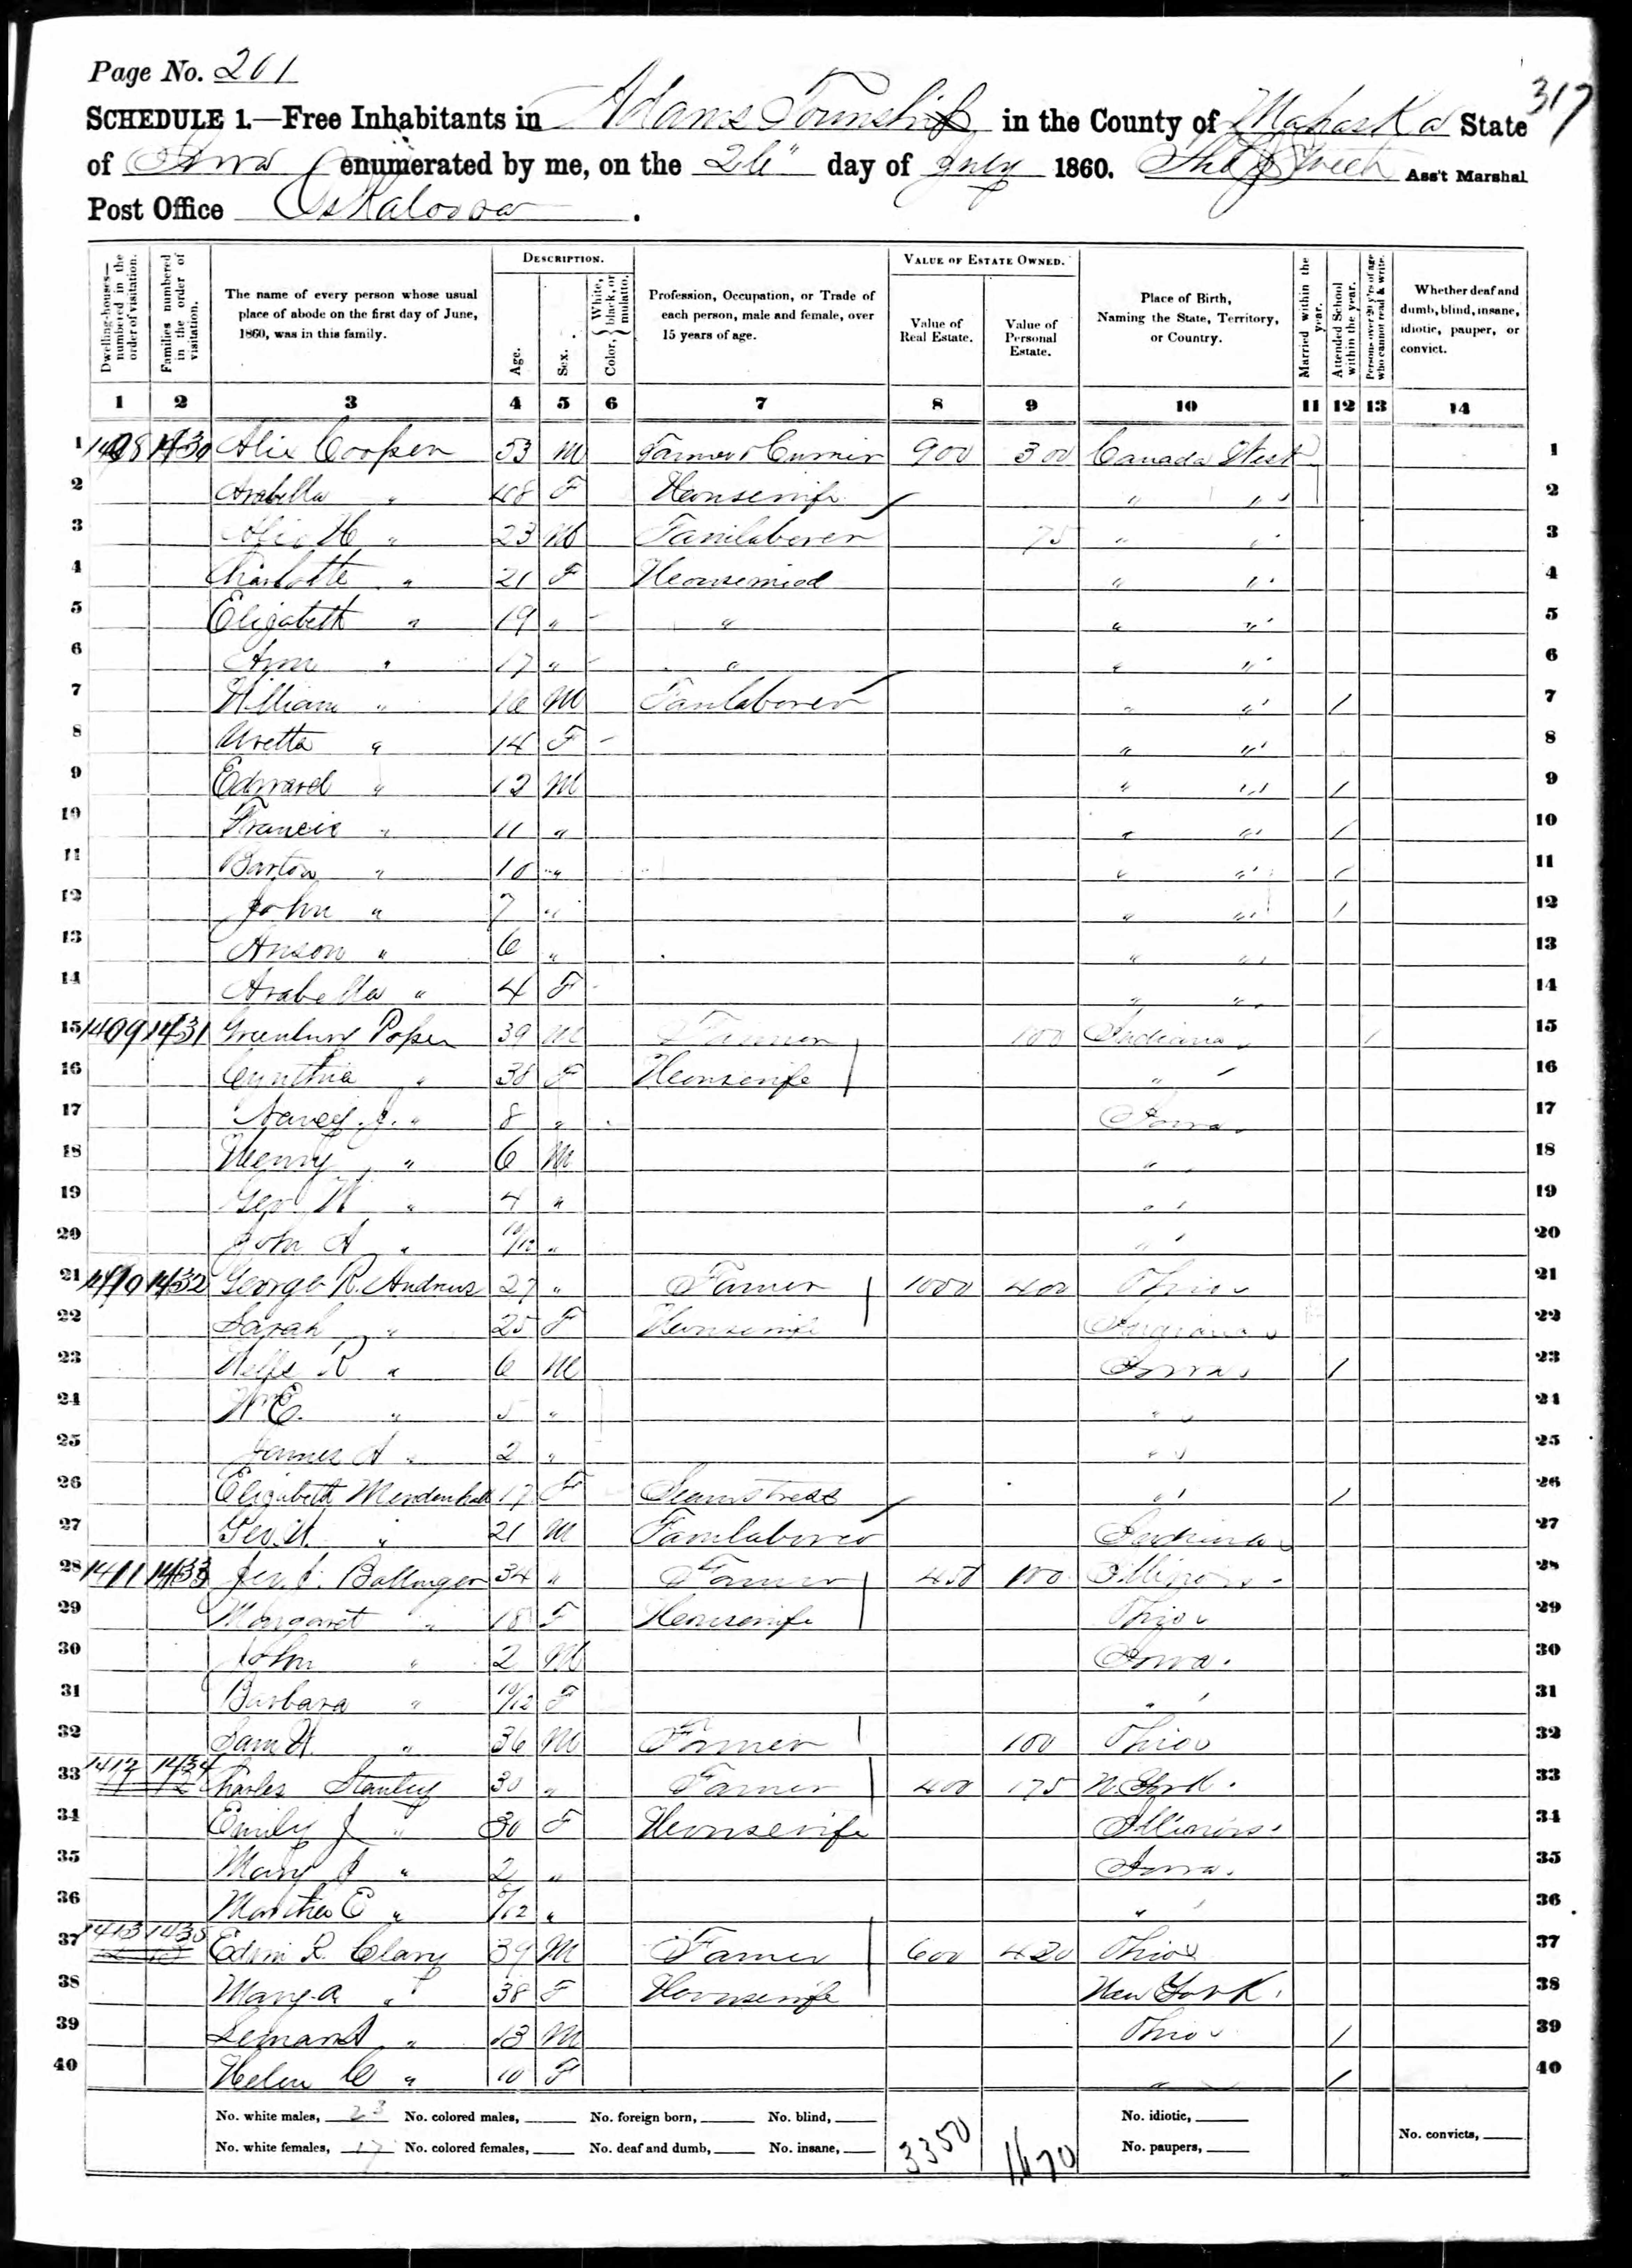 Page No. 201
317
SCHEDULE 1.—Free Inhabitants in Adams Township in the County of Mahaska State
of Iowa enumerated by me, on the 26" day of July 1860. Ass't Marshal
Post Office Oskaloosa.
Dwelling-houses—numbered in the order of visitation.
Families numbered in the order of visitation.
The name of every person whose usual place of abode on the first day of June, 1860, was in this family.
DESCRIPTION.
Age.
Sex.
Color, { White, black, or mulatto.
Profession, Occupation, or Trade of each person, male and female, over 15 years of age.
VALUE OF ESTATE OWNED.
Value of Real Estate.
Value of Personal Estate.
Place of Birth, Naming the State, Territory, or Country.
Married within the year.
Attended School within the year.
Persons over 20 y'rs of age who cannot read & write.
Whether deaf and dumb, blind, insane, idiotic, pauper, or convict.
1 2 3 4 5 6 7 8 9 10 11 12 13 14
1 1408 1430 Alix Cooper 53 M Farmer 900 300 Canada West 1
2 Arabella " 48 F Housewife " " 2
3 H " 23 M Farmlaborer 75 " " 3
4 Charlotte " 21 F Housemaid " " 4
5 Elizabeth " 19 " " " " 5
6 Ann " 17 " " " " 6
7 William " 16 M Farmlaborer " " / 7
8 Uretta " 14 F " " 8
9 Edward " 12 M " " / 9
10 Francis " 11 " " " / 10
11 Barton " 10 " " " / 11
12 John " 7 " " " / 12
13 Anson " 6 " " " 13
14 Arabella " 4 F " " 14
15 1409 1431 Greenbury 39 M Farmer 100 Indiana / 15
16 Cynthia " 38 F Housewife " 16
17 Nancy J. " 8 " Iowa 17
18 Henry " 6 M " 18
19 Geo W " 4 " " 19
20 John A " 10/12 " " 20
21 1410 1432 George R. Andrews 27 " Farmer 1000 400 Ohio 21
22 Sarah " 25 F Housewife Indiana 22
23 R " 6 M Iowa / 23
24 W E. " 5 " " 24
25 James A " 2 " " 25
26 Elizabeth Mendenhall 17 F Seamstress " / 26
27 Geo. W. " 21 M Farmlaborer Indiana 27
28 1411 1433 Ballinger 34 " Farmer 450 100 Illinois 28
29 Margaret " 18 F Housewife Ohio 29
30 John " 2 M Iowa. 30
31 Barbara " 10/12 F " 31
32 Sam W. " 36 M Farmer 100 Ohio 32
33 1412 1434 Charles Stanley 30 " Farmer 400 175 N. York. 33
34 Emily J " 30 F Housewife Illinois. 34
35 Mary J " 2 " Iowa. 35
36 Martha E " /12 " " 36
37 1413 1435 R. Clary 39 M Farmer 600 420 Ohio 37
38 Mary A " 38 F Housewife New York. 38
39 " 13 M Ohio / 39
40 Helen C " 10 F " / 40
No. white males, 23 No. colored males, No. foreign born, No. blind, No. idiotic,
No. white females, 17 No. colored females, No. deaf and dumb, No. insane, 3350 1670 No. paupers, No. convicts,